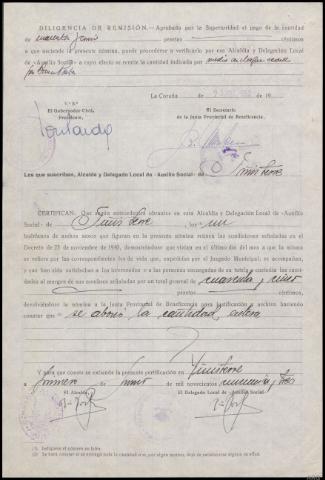 DILIGENCIA DE REMISIÓN.—Aprobado por la Superioridad el pago de la cantidad
de cuarenta y cinco pesetas céntimos
a que asciende la presente nómina, puede procederse a verificarlo por esa Alcaldía y Delegación Local
de «Auxilio Social» a cuyo efecto se remite la cantidad indicada por
La Coruña, de de 19
V.º B.º
El Gobernador Civil,
Presidente,
El Secretario
de la Junta Provincial de Beneficencia,
Los que suscriben, Alcalde y Delegado Local de «Auxilio Social» de
Finisterre
CERTIFICAN: Que según antecedentes obrantes en esta Alcaldía y Delegación Local de «Auxilio
Social» de Finisterre, los un
huérfanos de ambos sexos que figuran en la presente nómina reúnen las condiciones señaladas en el
Decreto de 23 de noviembre de 1940, demostrándose que vivían en el último día del mes a que la misma
se refiere por las correspondientes fes de vida que, expedidas por el Juzgado Municipal, se acompañan,
y que han sido satisfechas a los interesados o a las personas encargadas de su tutela o custodia las canti-
dades al margen de sus nombres señaladas por un total general de cuarenta y cinco
pesetas céntimos,
devolviéndose la nómina a la Junta Provincial de Beneficencia para justificación y archivo haciendo
constar que se abonó la cantidad entera
Y para que conste se extiende la presente certificación en Finisterre
a primero de de mil novecientos cincuenta y tres
El Alcalde,
El Delegado Local de «Auxilio Social»,
(1) Indíquese el número en letra.
(2) Se hará constar si se entregó toda la cantidad o si, por algún motivo, dejó de satisfacerse alguna de ellas.